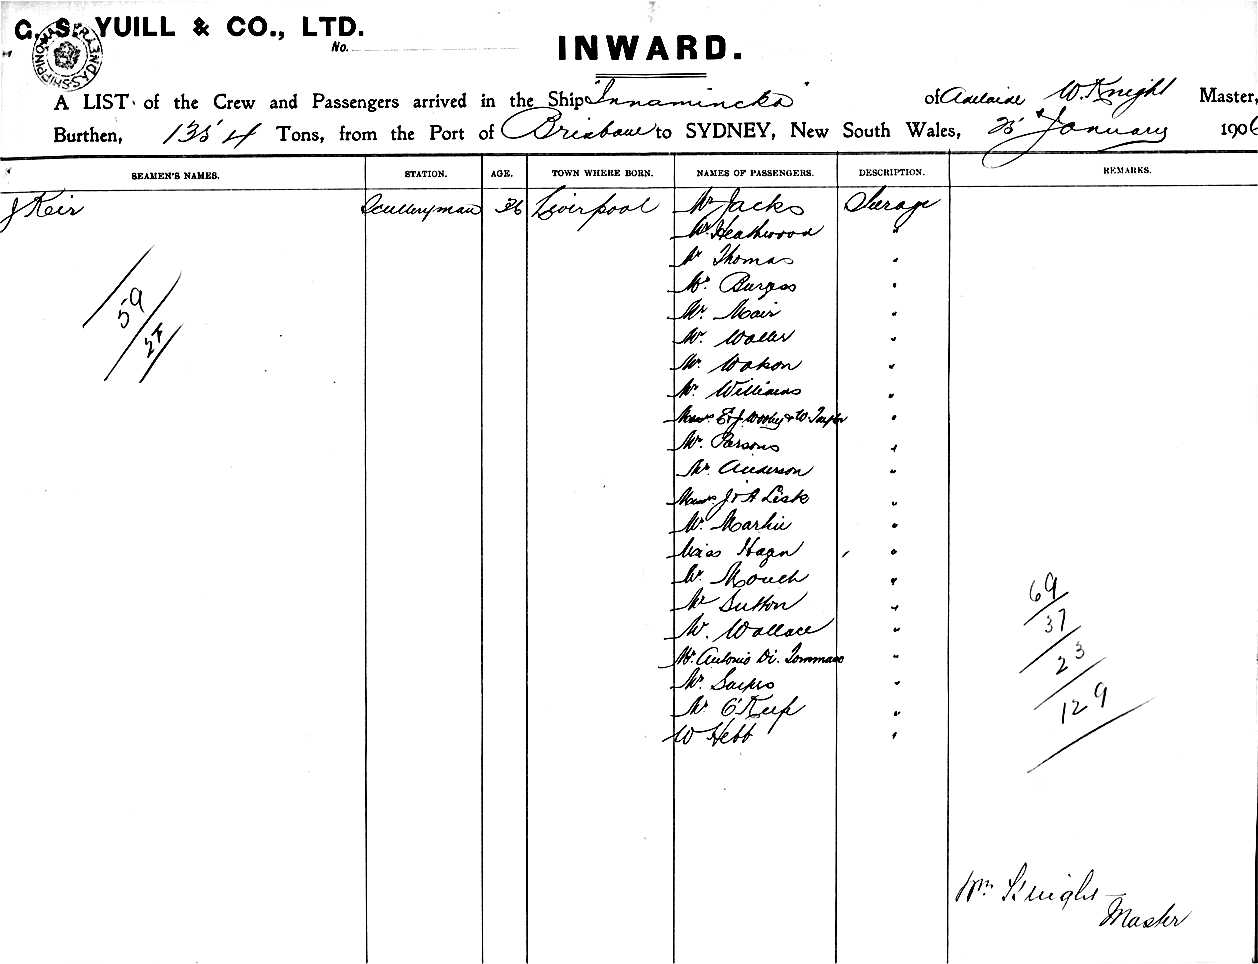 C. S. YUILL & CO., LTD.
No.
INWARD.
A LIST of the Crew and Passengers arrived in the Ship Innamincka of Adelaide W. Knight Master,
Burthen, 1354 Tons, from the Port of Brisbane to SYDNEY, New South Wales, January 1906
SEAMEN'S NAMES. STATION. AGE. TOWN WHERE BORN. NAMES OF PASSENGERS. DESCRIPTION. REMARKS.
J Keir Sculleryman 36 Liverpool Mr Jacks Steerage
Mr Heathwood "
Mr Thomas "
Mr. Burgess "
Mr. Mair "
Mr. Waller "
Mr. Watson "
Mr. Williams "
59
27
Mr. Parsons "
Mr. Anderson "
Messrs. J & A Lisk "
Mr. Martin "
Miss Hagn "
Mr. "
Mr Sutton "
Mr. Wallace "
Mr. Antonio Di. Tommaso "
Mr. "
Mr O'Keefe "
W Hebb "
69
37
23
129
Wm Knight
Master